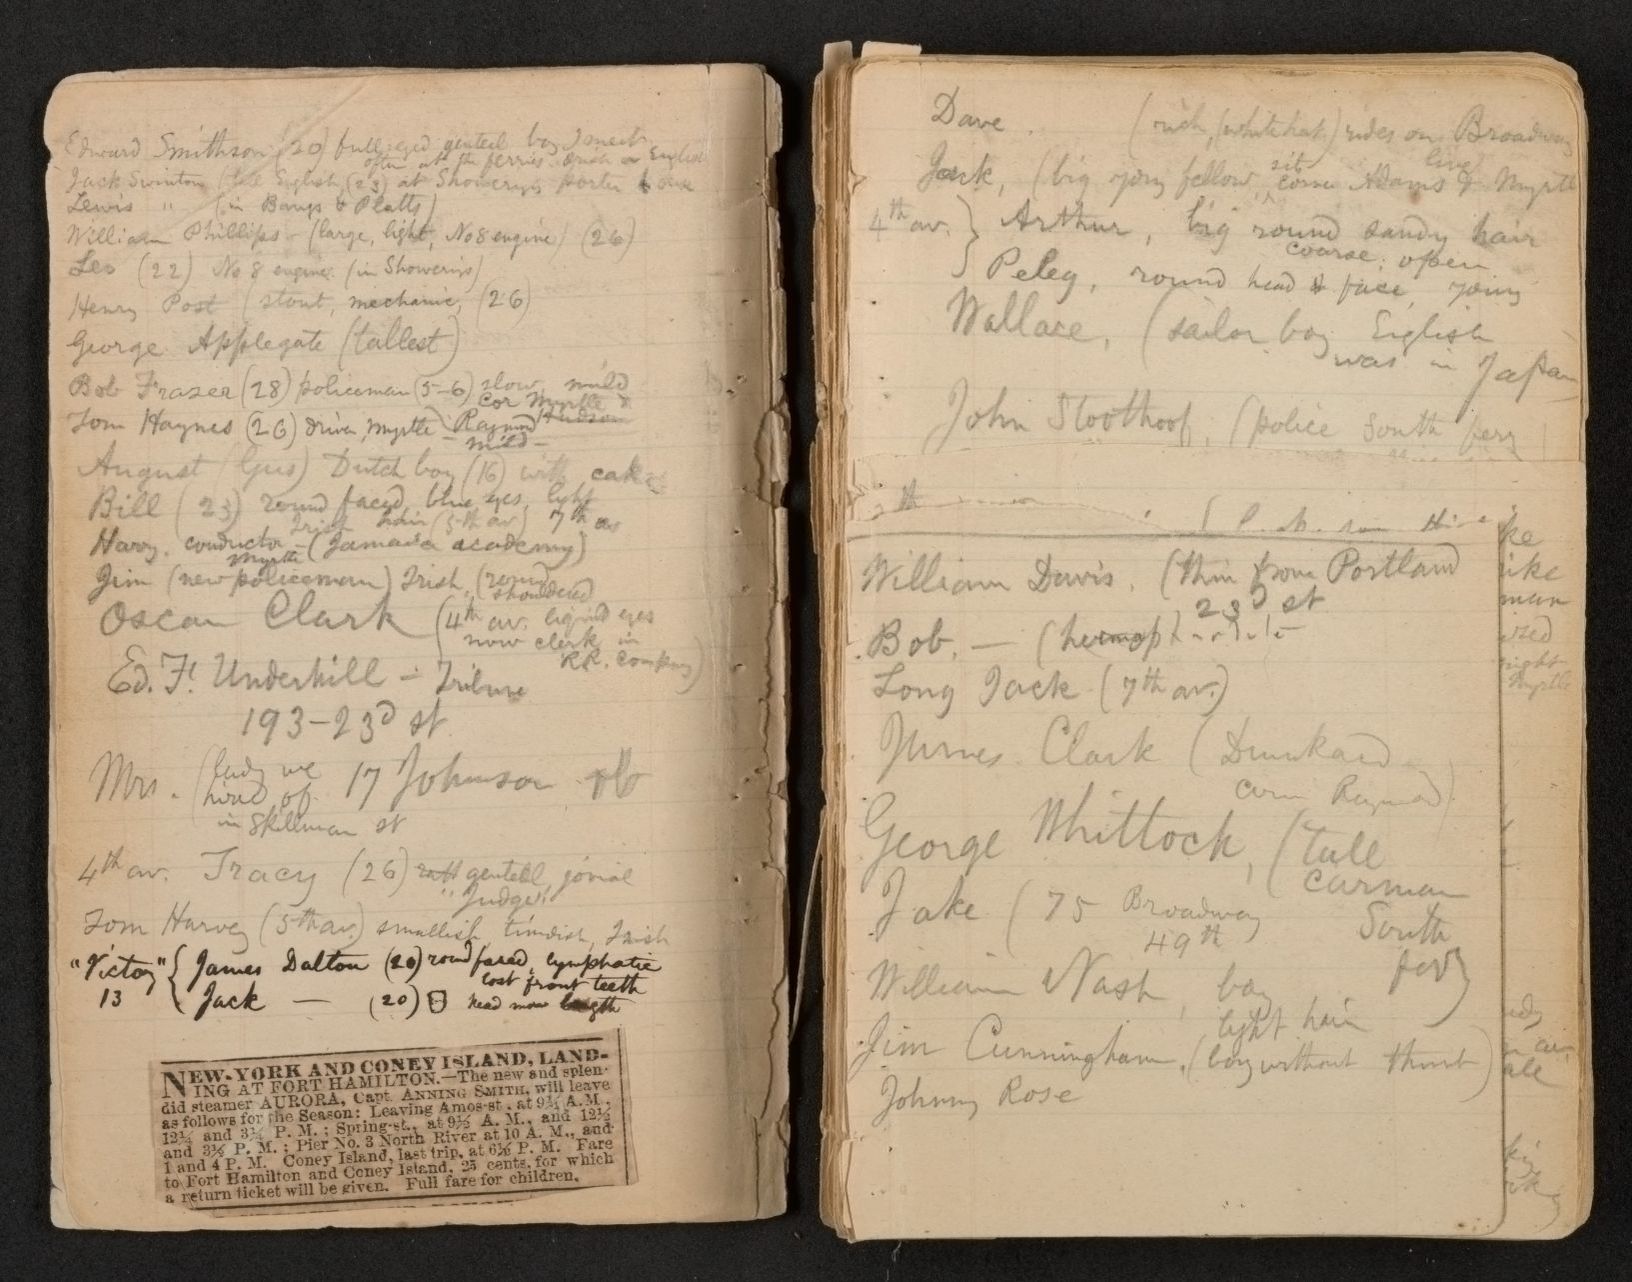 Edward Smithson (20) full eyed genteel boy I meet
often at the ferries
Jack Swinton (tall English (23) at Showery's porter house
Lewis " (in Bangs & Platts)
William Phillips – (large, light, No 8 engine) (26)
Leo (22) No 8 engine (in Showerys)
Henry Post (stout, mechanic, (26)
George Applegate (tallest)
Bob Frazer (28) policeman (5-6) slow, mild
cor Myrtle &
Tom Haynes (26) driver, Myrtle – Raymond Hudson
mild –
August (Gus) Dutch boy (16) with cakes
Bill (23) round faced, blue eyes, light
Irish hair (5th av.) 7th av
Harry, conductor – (Jamaica academy)
Myrtle
Jim (new policeman) Irish, (round
shouldered
Oscar Clark (4th av. liquid eyes
now clerk in
R.R. company)
Ed. F. Underhill – Tribune
193–23d st
Mrs. (lady we
hired of 17 Johnson
in Skillman st
4th av. Tracy (26) genteel, jovial
"Judge"
Tom Harvey (5th av.) smallish timidish, Irish
"Victory" { James Dalton (20) round faced, lymphatic
lost front teeth
13 Jack — (20) head more length
NEW-YORK AND CONEY ISLAND, LAND-
ING AT FORT HAMILTON.—The new and splen-
did steamer AURORA, Capt. ANNING SMITH, will leave
as follows for the Season: Leaving Amos-st. at 9¼ A.M.,
12¼ and 3¼ P. M.; Spring-st., at 9½ A. M., and 12½
and 3½ P. M.; Pier No. 3 North River at 10 A. M., and
1 and 4 P. M. Coney Island, last trip, at 6½ P. M. Fare
to Fort Hamilton and Coney Island, 25 cents, for which
a return ticket will be given. Full fare for children.
Dave. (rich, (white hat) rides on Broadway
Jack, (big young fellow, sit live
corner Adams & Myrtle
4th av. } Arthur, big round sandy hair
coarse, open
Peleg, round head & face, young
Wallace, (sailor boy English
was in Japan
John Stoothoof, (police South ferry)
William Davis. (thin from Portland
23d st
Bob. — (
Long Jack (7th av.)
James Clark (Drunkard
corn Raymond)
George Whittock, (tall
carman
South
ferry)
Jake (75 Broadway
49th
William Nash, boy
light hair
Jim Cunningham, (boy without thumb)
Johnny Rose